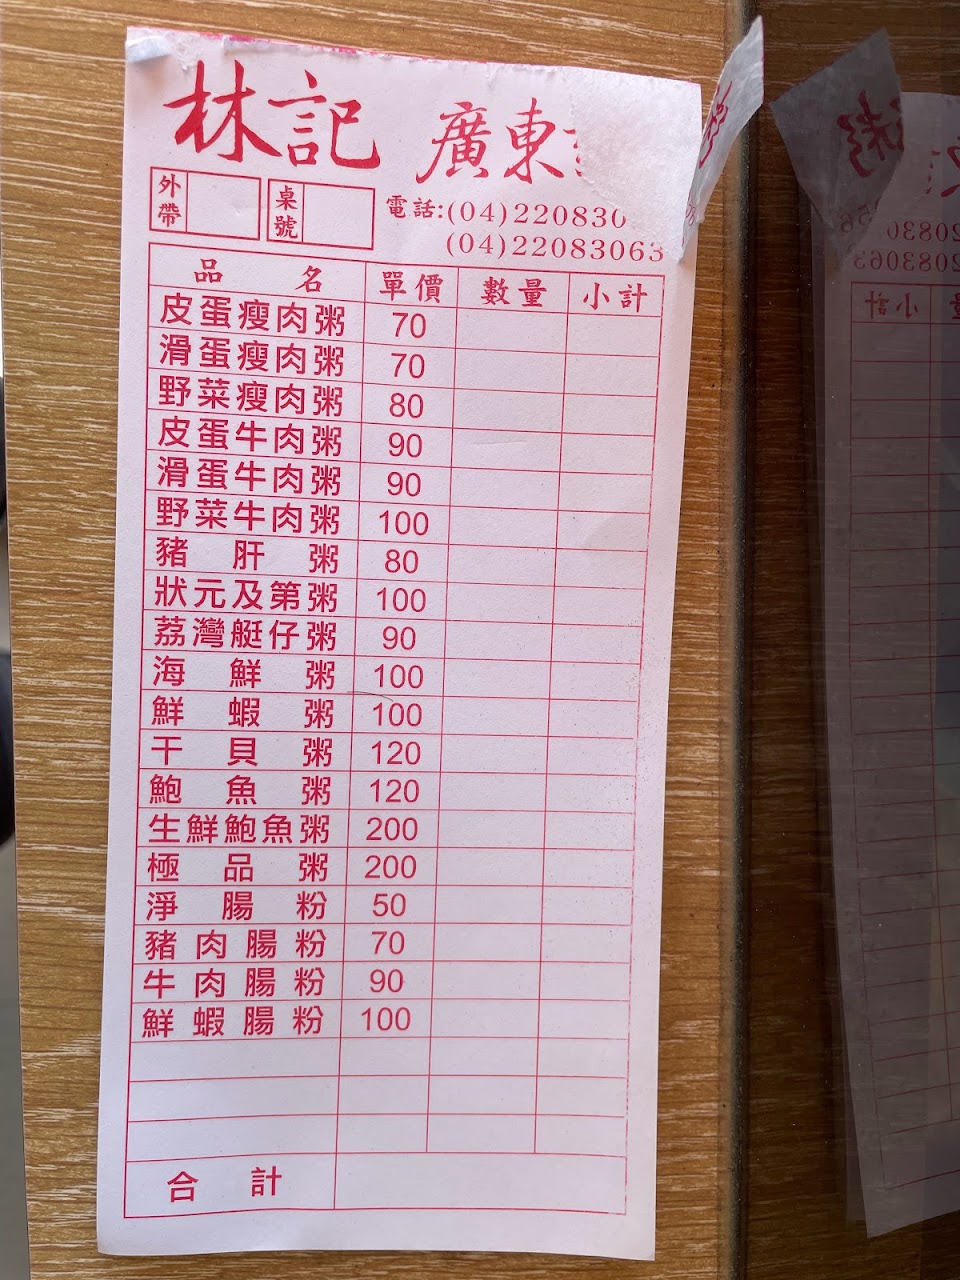 林記 廣東
外帶 桌號 電話:(04)220830
(04)22083063
品名 單價 數量 小計
皮蛋瘦肉粥 70
滑蛋瘦肉粥 70
野菜瘦肉粥 80
皮蛋牛肉粥 90
滑蛋牛肉粥 90
野菜牛肉粥 100
豬肝粥 80
狀元及第粥 100
荔灣艇仔粥 90
海鮮粥 100
鮮蝦粥 100
干貝粥 120
鮑魚粥 120
生鮮鮑魚粥 200
極品粥 200
淨腸粉 50
豬肉腸粉 70
牛肉腸粉 90
鮮蝦腸粉 100
合計